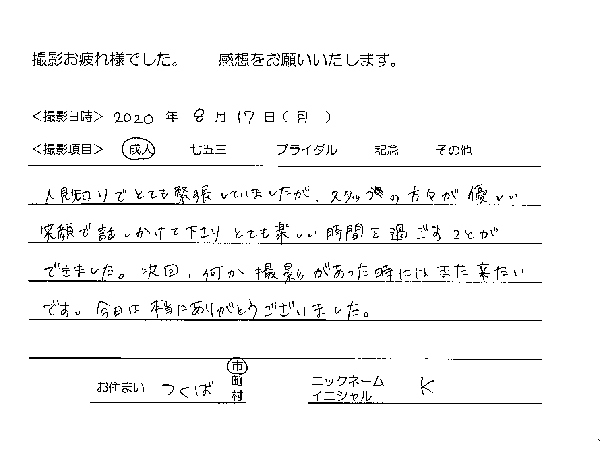 撮影お疲れ様でした。 感想をお願いいたします。
<撮影日時> 2020 年 8 月 17 日 ( 月 )
<撮影項目> 成人 七五三 ブライダル 記念 その他
人見知りでとても緊張していましたが、スタッフの方々が優しい
笑顔で話しかけて下さりとても楽しい時間を過ごすことが
できました。次回、何か撮影があった時にはまた来たい
です。今日は本当にありがとうございました。
お住まい つくば 市 町 村 ニックネーム イニシャル K